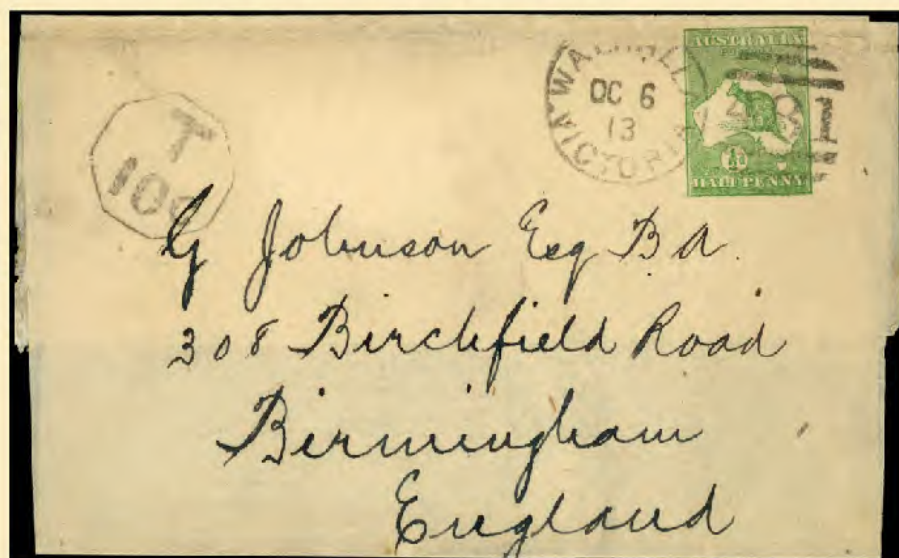 AUSTRALIA
POSTAGE
½D
HALF PENNY
WALHALLA
OC 6
13
VICTORIA
T
10c
G Johnson Esq B A.
308 Birchfield Road
Birmingham
England